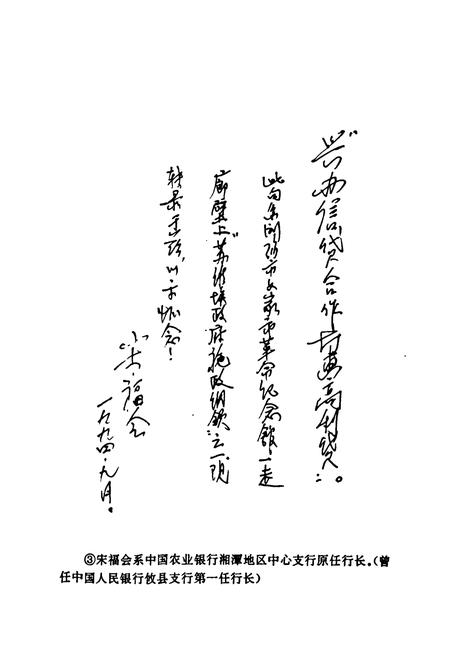 “兴办信贷合作 打击高利贷”。
此句系浏阳市文家市革命纪念馆一走
廊壁上“苏维埃政府施政纲领”之一，现
转录至此，以示怀念！
宋福会
一九九四·九月。
③宋福会系中国农业银行湘潭地区中心支行原任行长。（曾
任中国人民银行攸县支行第一任行长）